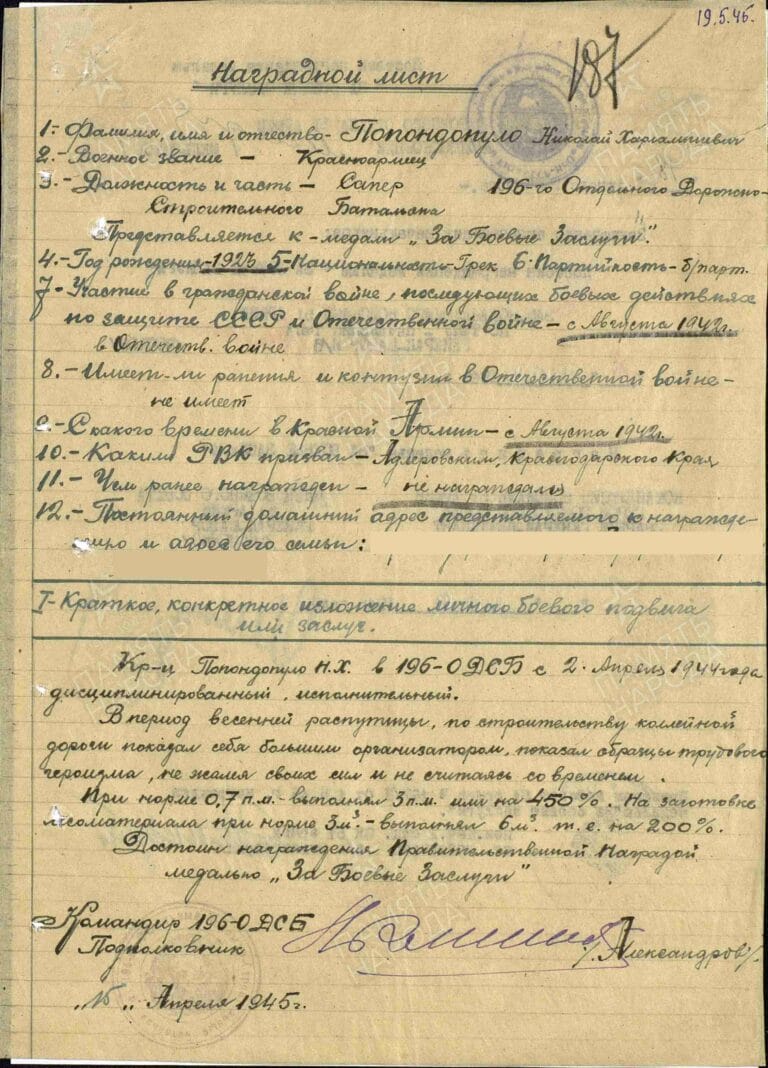 19.5.45.
187
Наградной лист
1.- Фамилия, имя и отчество - Попондопуло Николай Харлампиевич
2.- Военное звание - Красноармеец
3.- Должность и часть - Сапер 196-го Отдельного Дорожно-
Строительного Батальона
Представляется к - медали „За Боевые Заслуги".
4.- Год рождения - 1923 5- Национальность - Грек 6- Партийность - б/парт.
7- Участие в гражданской войне, последующих боевых действиях
по защите СССР и Отечественной войне - с Августа 1942г.
в Отечеств. войне
8.- Имеет-ли ранения и контузии в Отечественной войне -
не имеет
9.- С какого времени в Красной Армии - с Августа 1942г.
10.- Каким РВК призван - Адлеровским, Краснодарского Края
11.- Чем ранее награжден - не награждался
12.- Постоянный домашний адрес представляемого к награжде-
нию и адрес его семьи:
I- Краткое, конкретное изложение личного боевого подвига
или заслуг.
Кр-ц Попондопуло Н.Х. в 196-ОДСБ с 2. Апреля 1944 года
дисциплинированный, исполнительный.
В период весенней распутицы, по строительству колейной
дороги показал себя большим организатором, показал образцы трудового
героизма, не жалея своих сил и не считаясь со временем.
При норме 0,7 п.м. - выполнял 3 п.м. или на 450%. На заготовке
лесоматериала при норме 3м³. - выполнял 6м³. т.е. на 200%.
Достоин награждения Правительственной Наградой
медалью „За Боевые Заслуги"
Командир 196-ОДСБ
Подполковник /Александров/.
„15„ Апреля 1945г.